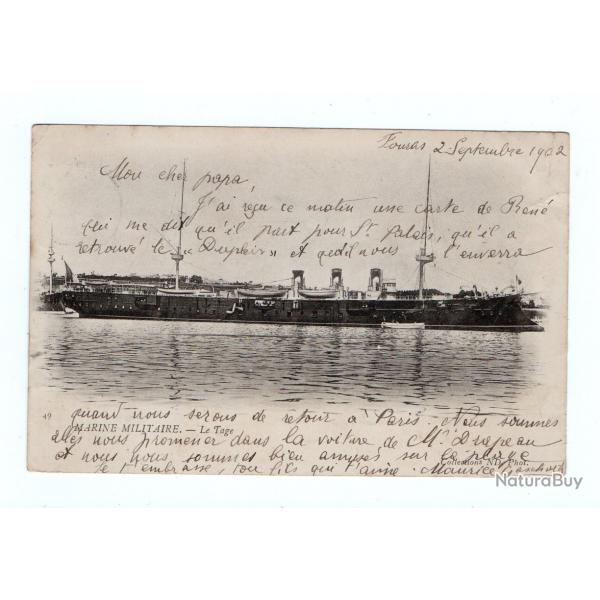 Fouras 2 Septembre 1902
Mon cher papa,
J'ai reçu ce matin une carte de René
qui me dit qu'il part pour St Palais, qu'il a
retrouvé le « Dupleix » et qu'il nous l'enverra
quand nous serons de retour à Paris. Nous sommes
49
MARINE MILITAIRE. — Le Tage
allés nous promener dans la voiture de Mr Drapeau
et nous nous sommes bien amusés sur la plage
Collections ND Phot.
Je t'embrasse, ton fils qui t'aime. Maurice
NaturaBuy